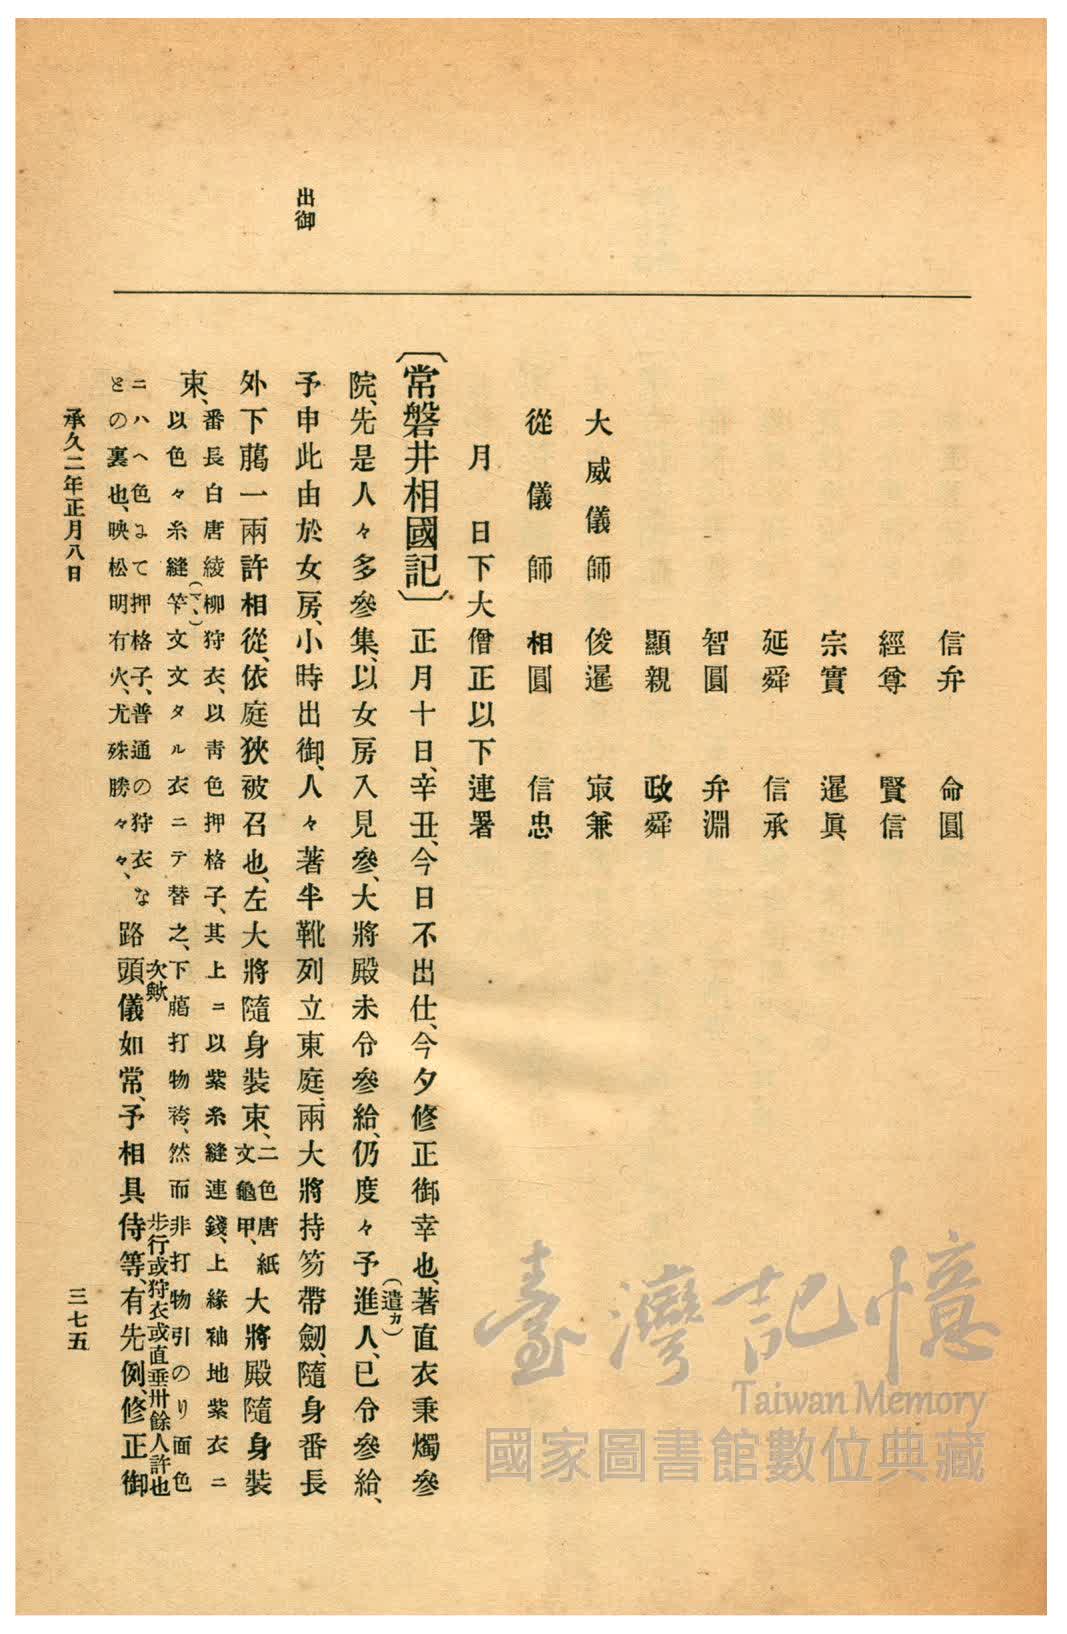 出御
信弁　命圓
經尊　賢信
宗實　暹眞
延舜　信承
智圓　弁淵
顯親　政舜
大威儀師　俊暹　㝡兼
從儀師　相圓　信忠
月　日下大僧正以下連署
〔常磐井相國記〕正月十日、辛丑、今日不出仕、今夕修正御幸也、著直衣秉燭參
院、先是人々多參集、以女房入見參、大將殿未令參給、仍度々予進(遣カ)人、已令參給、
予申此由於女房、小時出御、人々著半靴列立東庭、兩大將持笏帶劒、隨身番長
外下﨟一兩許相從、依庭狹被召也、左大將隨身裝束、二色唐紙文龜甲、大將殿隨身裝
束、番長白唐綾柳狩衣、以靑色押格子、其上ニ以紫糸縫連錢、上緣袖地紫衣ニ
以色々糸縫(マヽ)竿文文タル衣ニテ替之、下﨟打物袴、然而非打物引のり面色
ニハヘ色ニて押格子、普通の狩衣な
との裏也、映松明有火、尤殊勝々々、
路頭次歟儀如常、予相具侍等、步行或狩衣或直垂卅餘人許也有先例、修正御
承久二年正月八日
三七五
臺灣記憶
Taiwan Memory
國家圖書館數位典藏